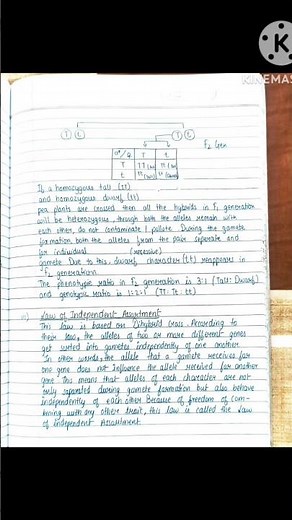 KINEMAS
T t T t
F2 Gen
♂/♀ T t
T TT
t
If a homozygous tall (TT)
and homozygous dwarf (tt)
pea plants are crossed then all the hybrids in F1 generation
will be heterozygous, through both the alleles remain with
each other, do not contaminate / pollute. During the gamete
formation both the alleles from the pair seperate and
for individual (recessive)
gamete Due to this, dwarf character (tt) reappears in
F2 generation.
The phenotypic ratio in F2 generation is 3:1 (Tall: Dwarf)
and genotypic ratio is 1:2:1 (TT: Tt: tt)
Law of Independent Assortment
This law is based on Dihybrid cross. According to
their law, the alleles of two or more different genes
get sorted into gametes independently of one another
In other words, the allele that a gamete receives for
one gene does not influence the allele received for another
gene. This means that alleles of each character are not
only separated during gamete formation but also behave
independently of each other. Because of freedom of com-
bining with any other trait, this law is called the law
of independent Assortment